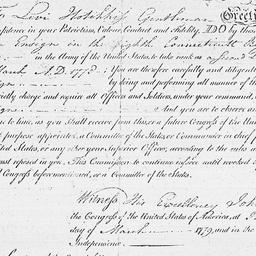 To Levi Hotchkiss Gentleman Greeting
fidence in your Patriotism, Valour, Conduct and Fidelity, DO by these
Ensign in the Eighth Connecticut
in the Army of the United States, to take rank as
March A.D. 1778. You are therefore carefully and diligently
by doing and performing all manner of
strictly charge and require all Officers and Soldiers, under your command,
And you are to observe and
to time, as you shall receive from this, or a future Congress of the United
purpose appointed, a Committee of the States, or Commander in chief
United States, or any other your Superior Officer, according to the rules
reposed in you. This Commission to continue in force until revoked
Congress before mentioned, or a Committee of the States.
Witness His Excellency John
the Congress of the United States of America, at
day of March 1779, and in the
Independence.